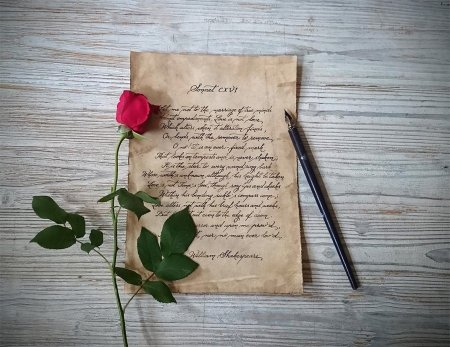 Sonnet CXVI
me not to the marriage of true minds
impediments. Love is not love,
Which alters when it alteration finds
Or bends with the remover to remove.
O no! it is an ever-fixed mark
That looks on tempests and is never shaken
It is the star to every wandering bark
Whose worth's unknown, although his height be taken
Love's not Time's fool, though rosy lips and cheeks
Within his bending sickle's compass come
alters not with his brief hours and weeks
But out even to the edge of doom
error and upon me proved
nor no man ever loved.
William Shakespeare